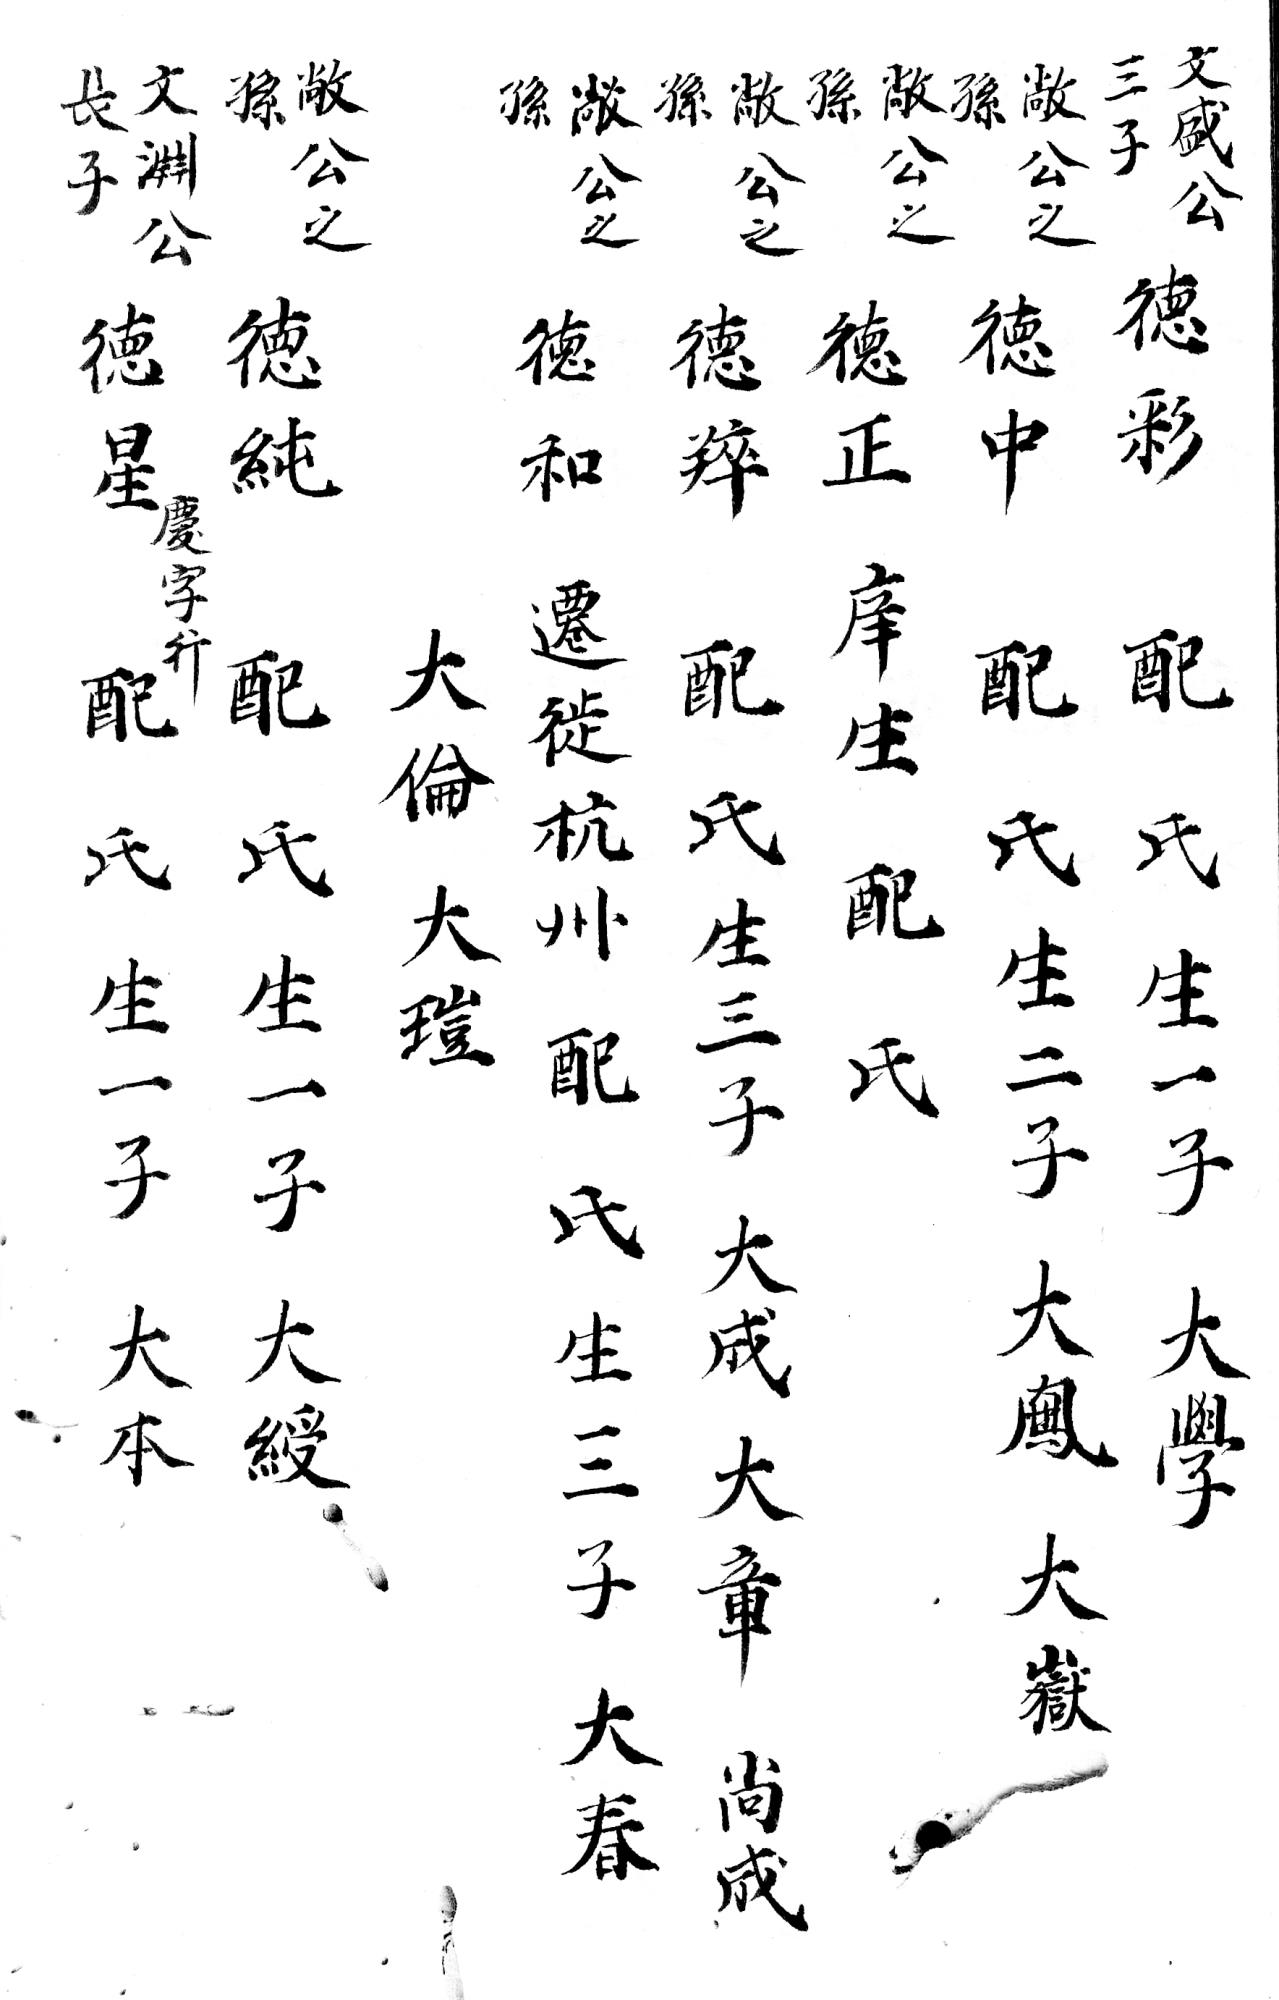 文盛公三子 德彩 配 氏生一子 大學
敞公之孫 德中 配 氏生二子 大鳳 大嶽
敞公之孫 德正 庠生 配 氏
敞公之孫 德粹 配 氏生三子 大成 大章 尚成
敞公之孫 德和 遷徙杭州 配 氏生三子 大春
大倫 大瑄
敞公之孫 德純 配 氏生一子 大綬
文淵公長子 德星 慶字行 配 氏生一子 大本